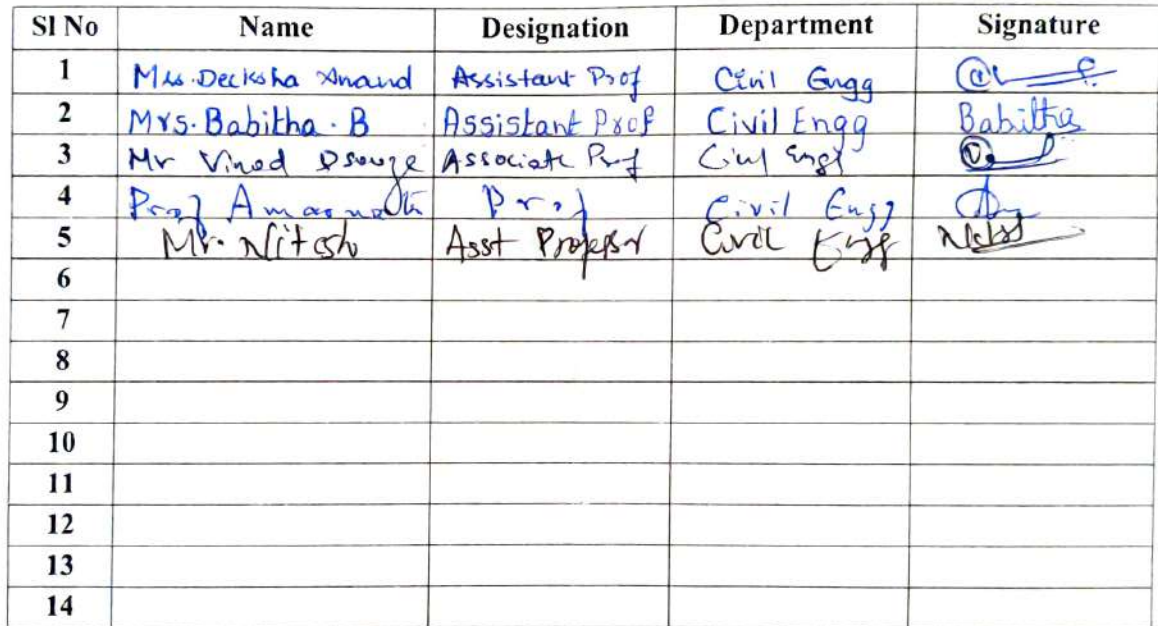 Sl No Name Designation Department Signature
1 Mrs. Deeksha Anand Assistant Prof Civil Engg
2 Mrs. Babitha . B Assistant Prof Civil Engg Babitha
3 Mr Vinod Dsouze Associate Prof Civil Engg
4 Prof Amarnath Prof Civil Engg
5 Mr. Nitesh Asst Professor Civil Engg
6
7
8
9
10
11
12
13
14